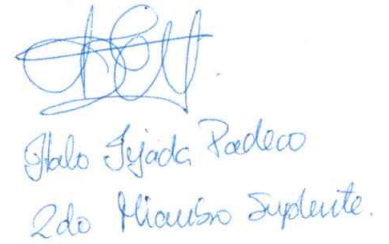 Italo Tejada Padeco
2do Miembro Suplente.